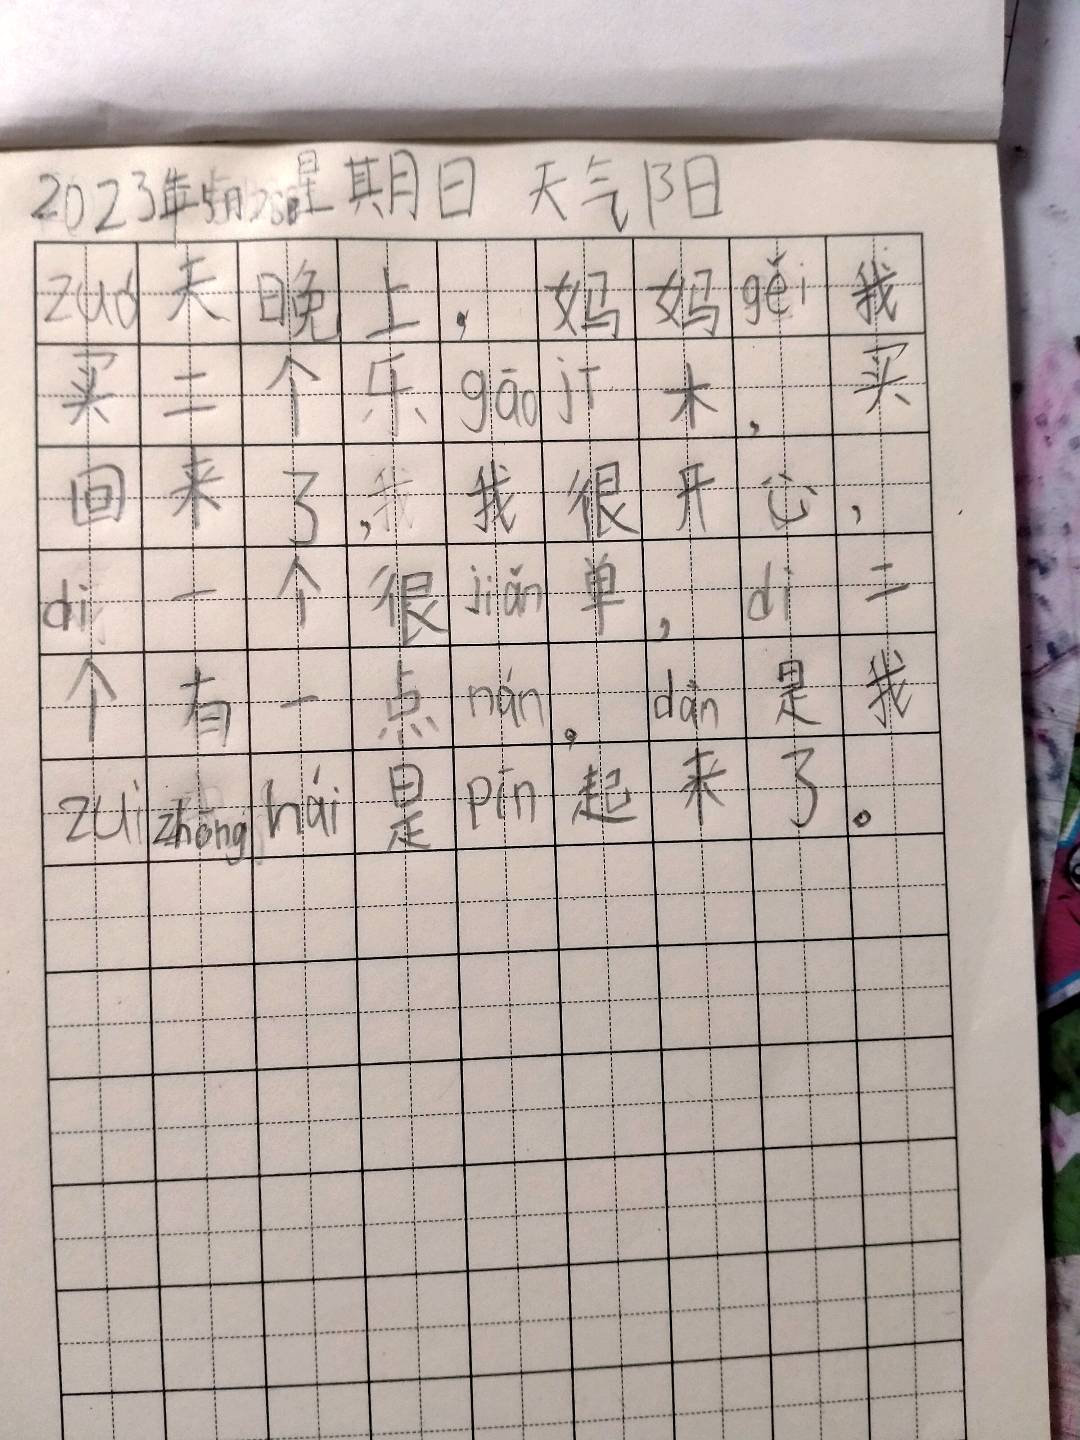 2023年5月28日星期日 天气阳
zuó天晚上，妈妈gěi我
买二个乐gāojī木，买
回来了，我很开心，
di一个很jiǎn单，di二
个有一点nán。dàn是我
zuìzhōnghái是pīn起来了。